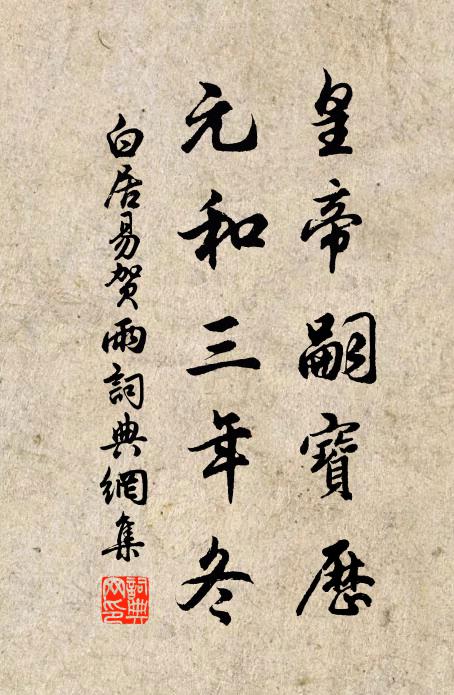 皇帝嗣寶歷
元和三年冬
白居易賀雨詞典網集
詞典網印